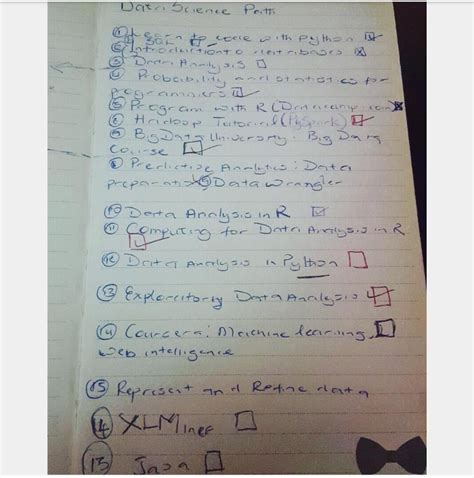 Data Science Path
① Learn to code with python
& SQL
② Introduction to databases
③ Data Analysis
④ Probability and statistics for
programmers
⑤ Program with R (Datacamp.com)
⑥ Hadoop Tutorial (PySpark)
⑦ Big Data University: Big Data
Course
⑧ Predictive Analytics: Data
preparation ⑨ Data wrangler
⑩ Data Analysis in R
⑪ Computing for Data Analysis in R
⑫ Data Analysis in Python
⑬ Exploratory Data Analysis
⑭ Coursera: Machine learning,
Web intelligence
⑮ Represent and Refine data
14 XLMiner
13 Java